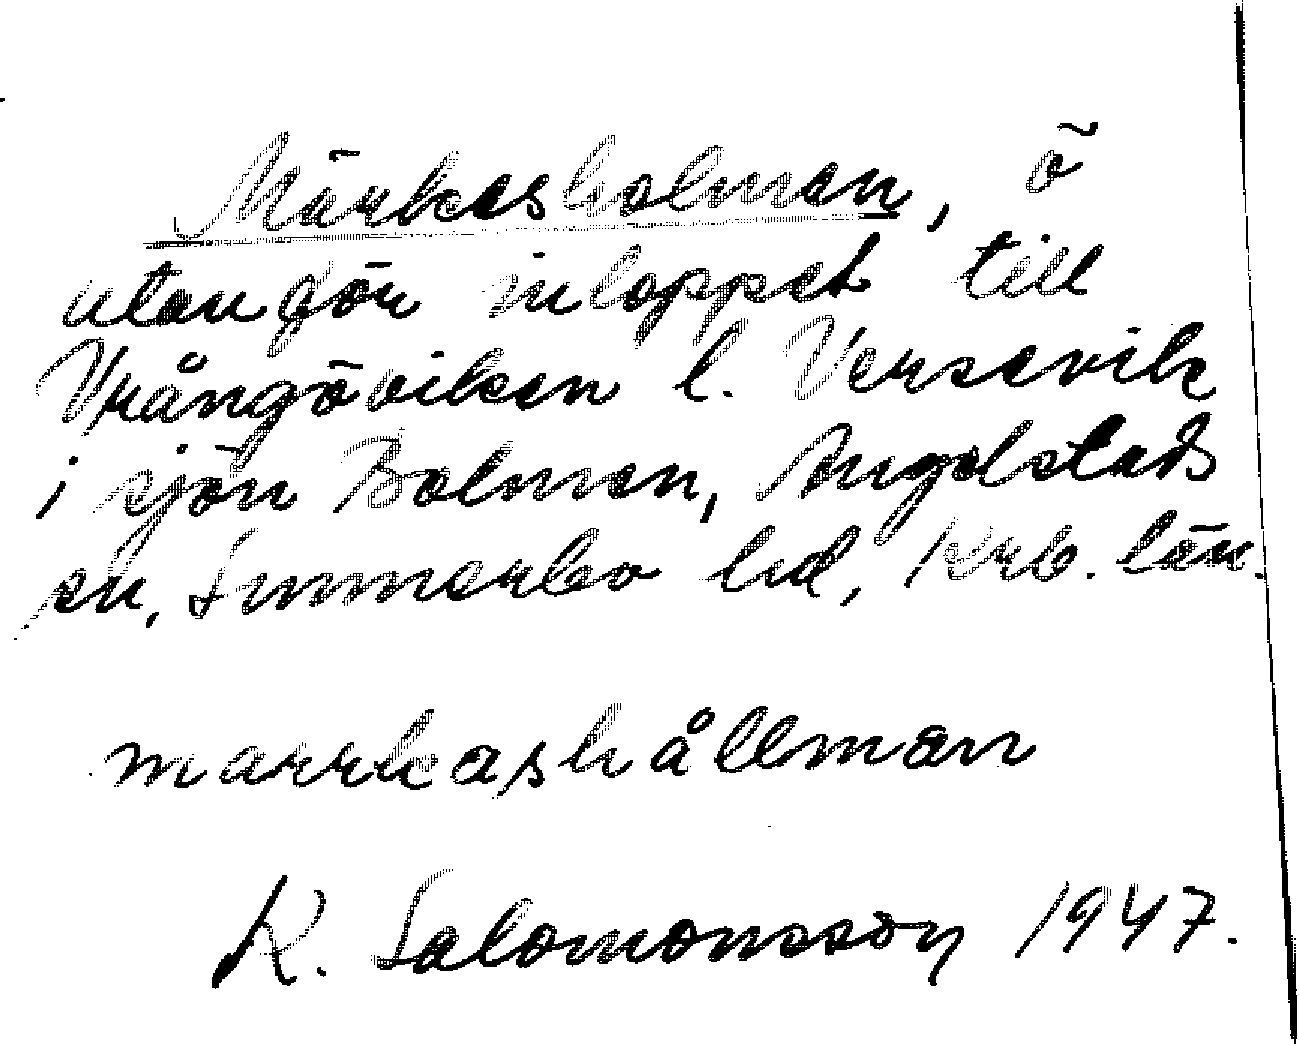 Märkesholmen, ö
utanför inloppet till
Vrångöviken l. Versevik
i sjön Bolmen, Angelstads
sn, Sunnerbo hd, Krb. län.
markashållman
K. Salomonsson 1947.